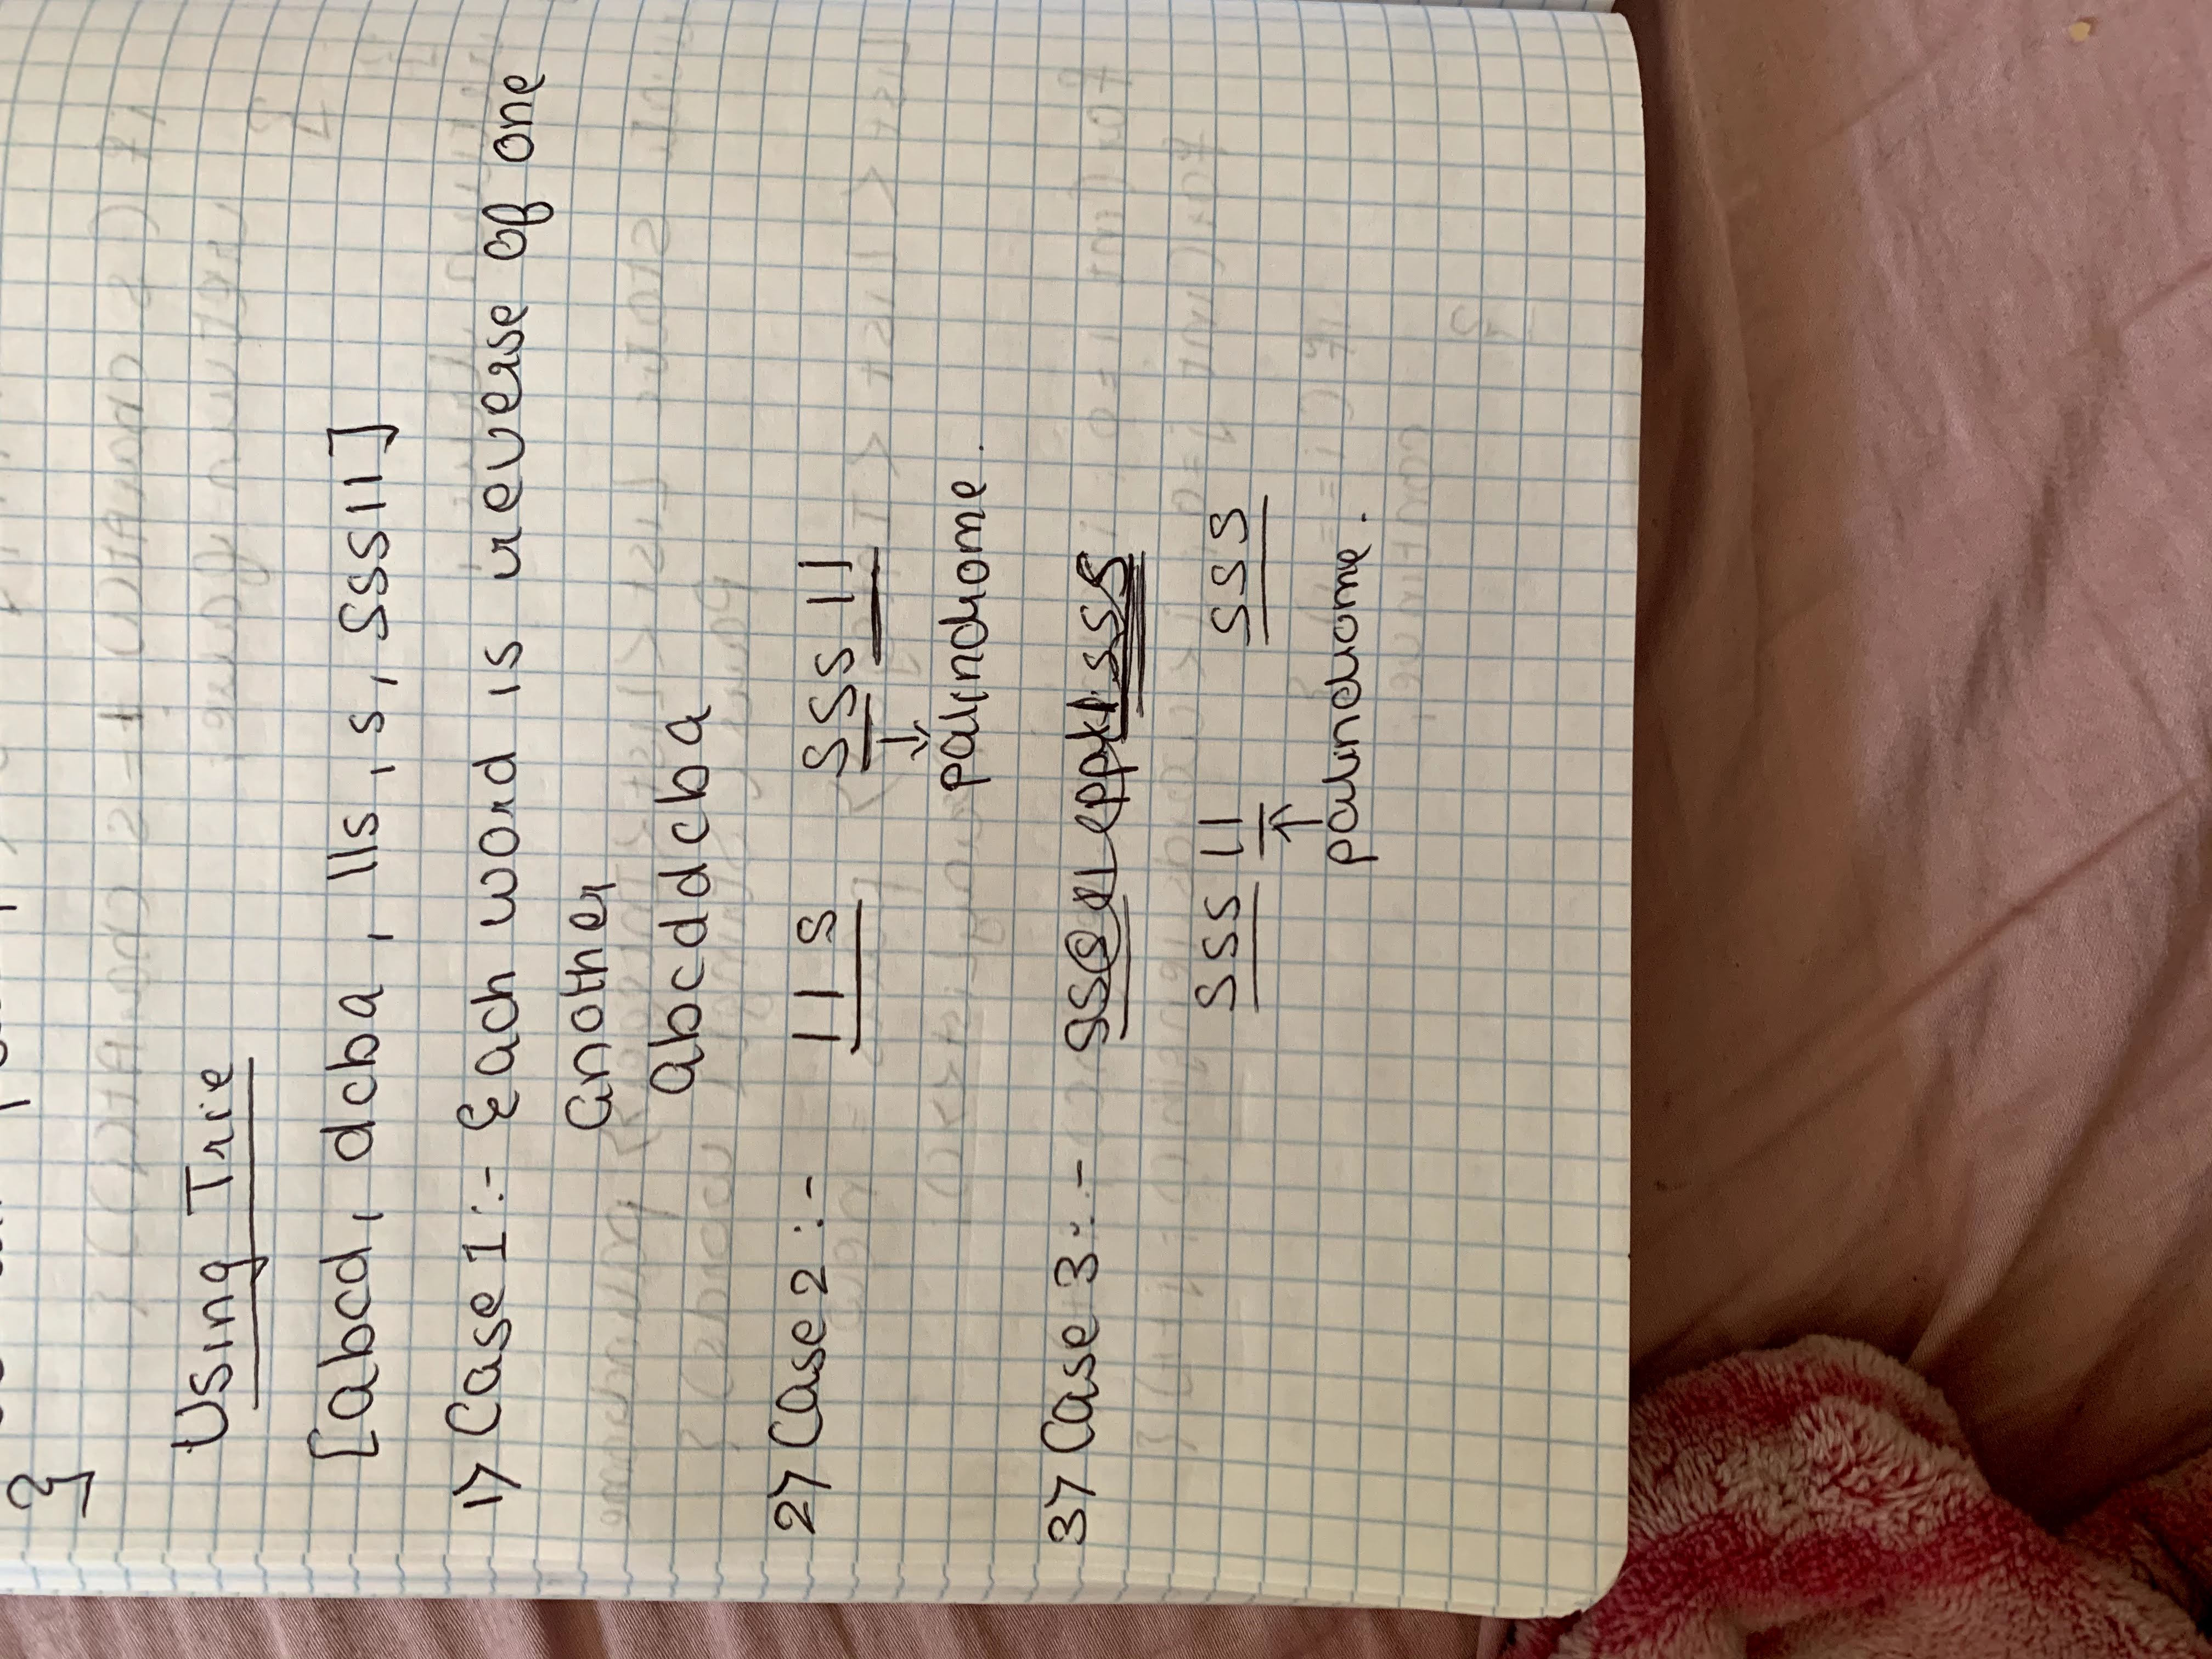 }
Using Trie
[abcd, dcba, lls, s, sssll]
1) Case 1:- Each word is reverse of one
another
abcddcba
2) Case 2:- lls sssll
palindrome.
3) Case 3:-
sssll sss
palindrome.